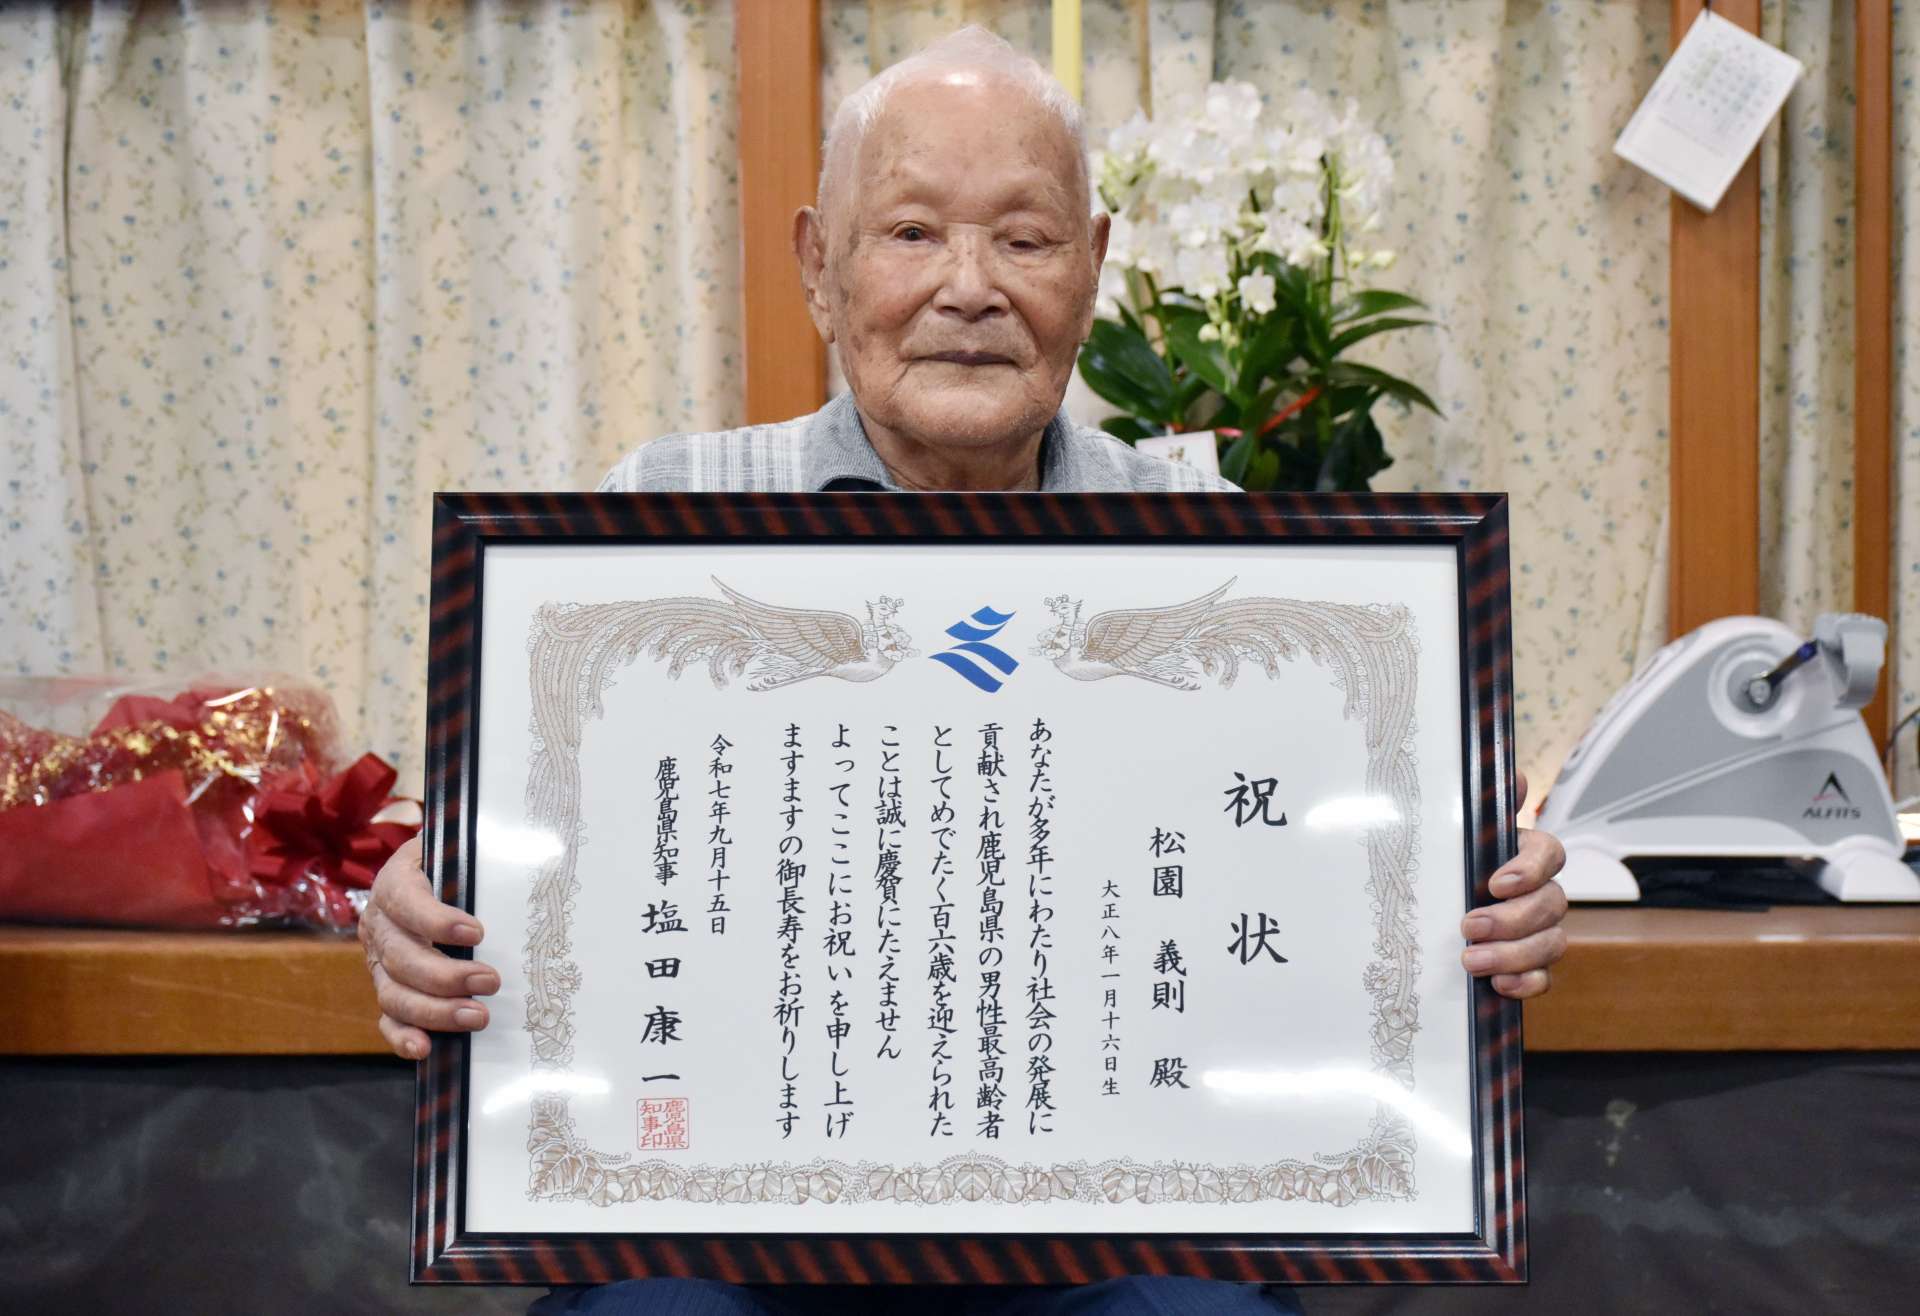 祝状
松園 義則 殿
大正八年一月十六日生
あなたが多年にわたり社会の発展に
貢献され鹿児島県の男性最高齢者
としてめでたく百六歳を迎えられた
ことは誠に慶賀にたえません
よってここにお祝いを申し上げ
ますますの御長寿をお祈りします
令和七年九月十五日
鹿児島県知事 塩田康一
鹿児島県
知事印
ALFITS